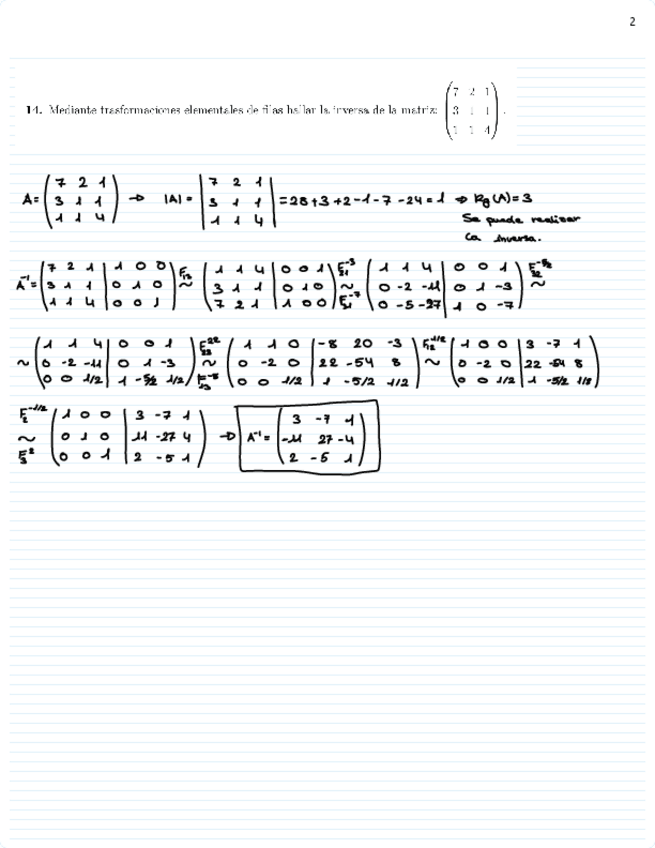 2
14. Mediante trasformaciones elementales de filas hallar la inversa de la matriz: (7 2 1 / 3 1 1 / 1 1 4).
A = (7 2 1 / 3 1 1 / 1 1 4) → |A| = |7 2 1 / 3 1 1 / 1 1 4| = 28+3+2-1-7-24 = 1 ⇒ Rg(A)=3
Se puede realizar
la inversa.
A⁻¹ = (7 2 1 | 1 0 0 / 3 1 1 | 0 1 0 / 1 1 4 | 0 0 1) F13 ~ (1 1 4 | 0 0 1 / 3 1 1 | 0 1 0 / 7 2 1 | 1 0 0) ~ (1 1 4 | 0 0 1 / 0 -2 -11 | 0 1 -3 / 0 -5 -27 | 1 0 -7) ~
~ (1 1 4 | 0 0 1 / 0 -2 -11 | 0 1 -3 / 0 0 1/2 | 1 -5/2 1/2) ~ (1 1 0 | -8 20 -3 / 0 -2 0 | 22 -54 8 / 0 0 1/2 | 1 -5/2 1/2) ~ (1 0 0 | 3 -7 1 / 0 -2 0 | 22 -54 8 / 0 0 1/2 | 1 -5/2 1/2)
~ (1 0 0 | 3 -7 1 / 0 1 0 | 11 -27 4 / 0 0 1 | 2 -5 1) → A⁻¹ = (3 -7 1 / -11 27 -4 / 2 -5 1)